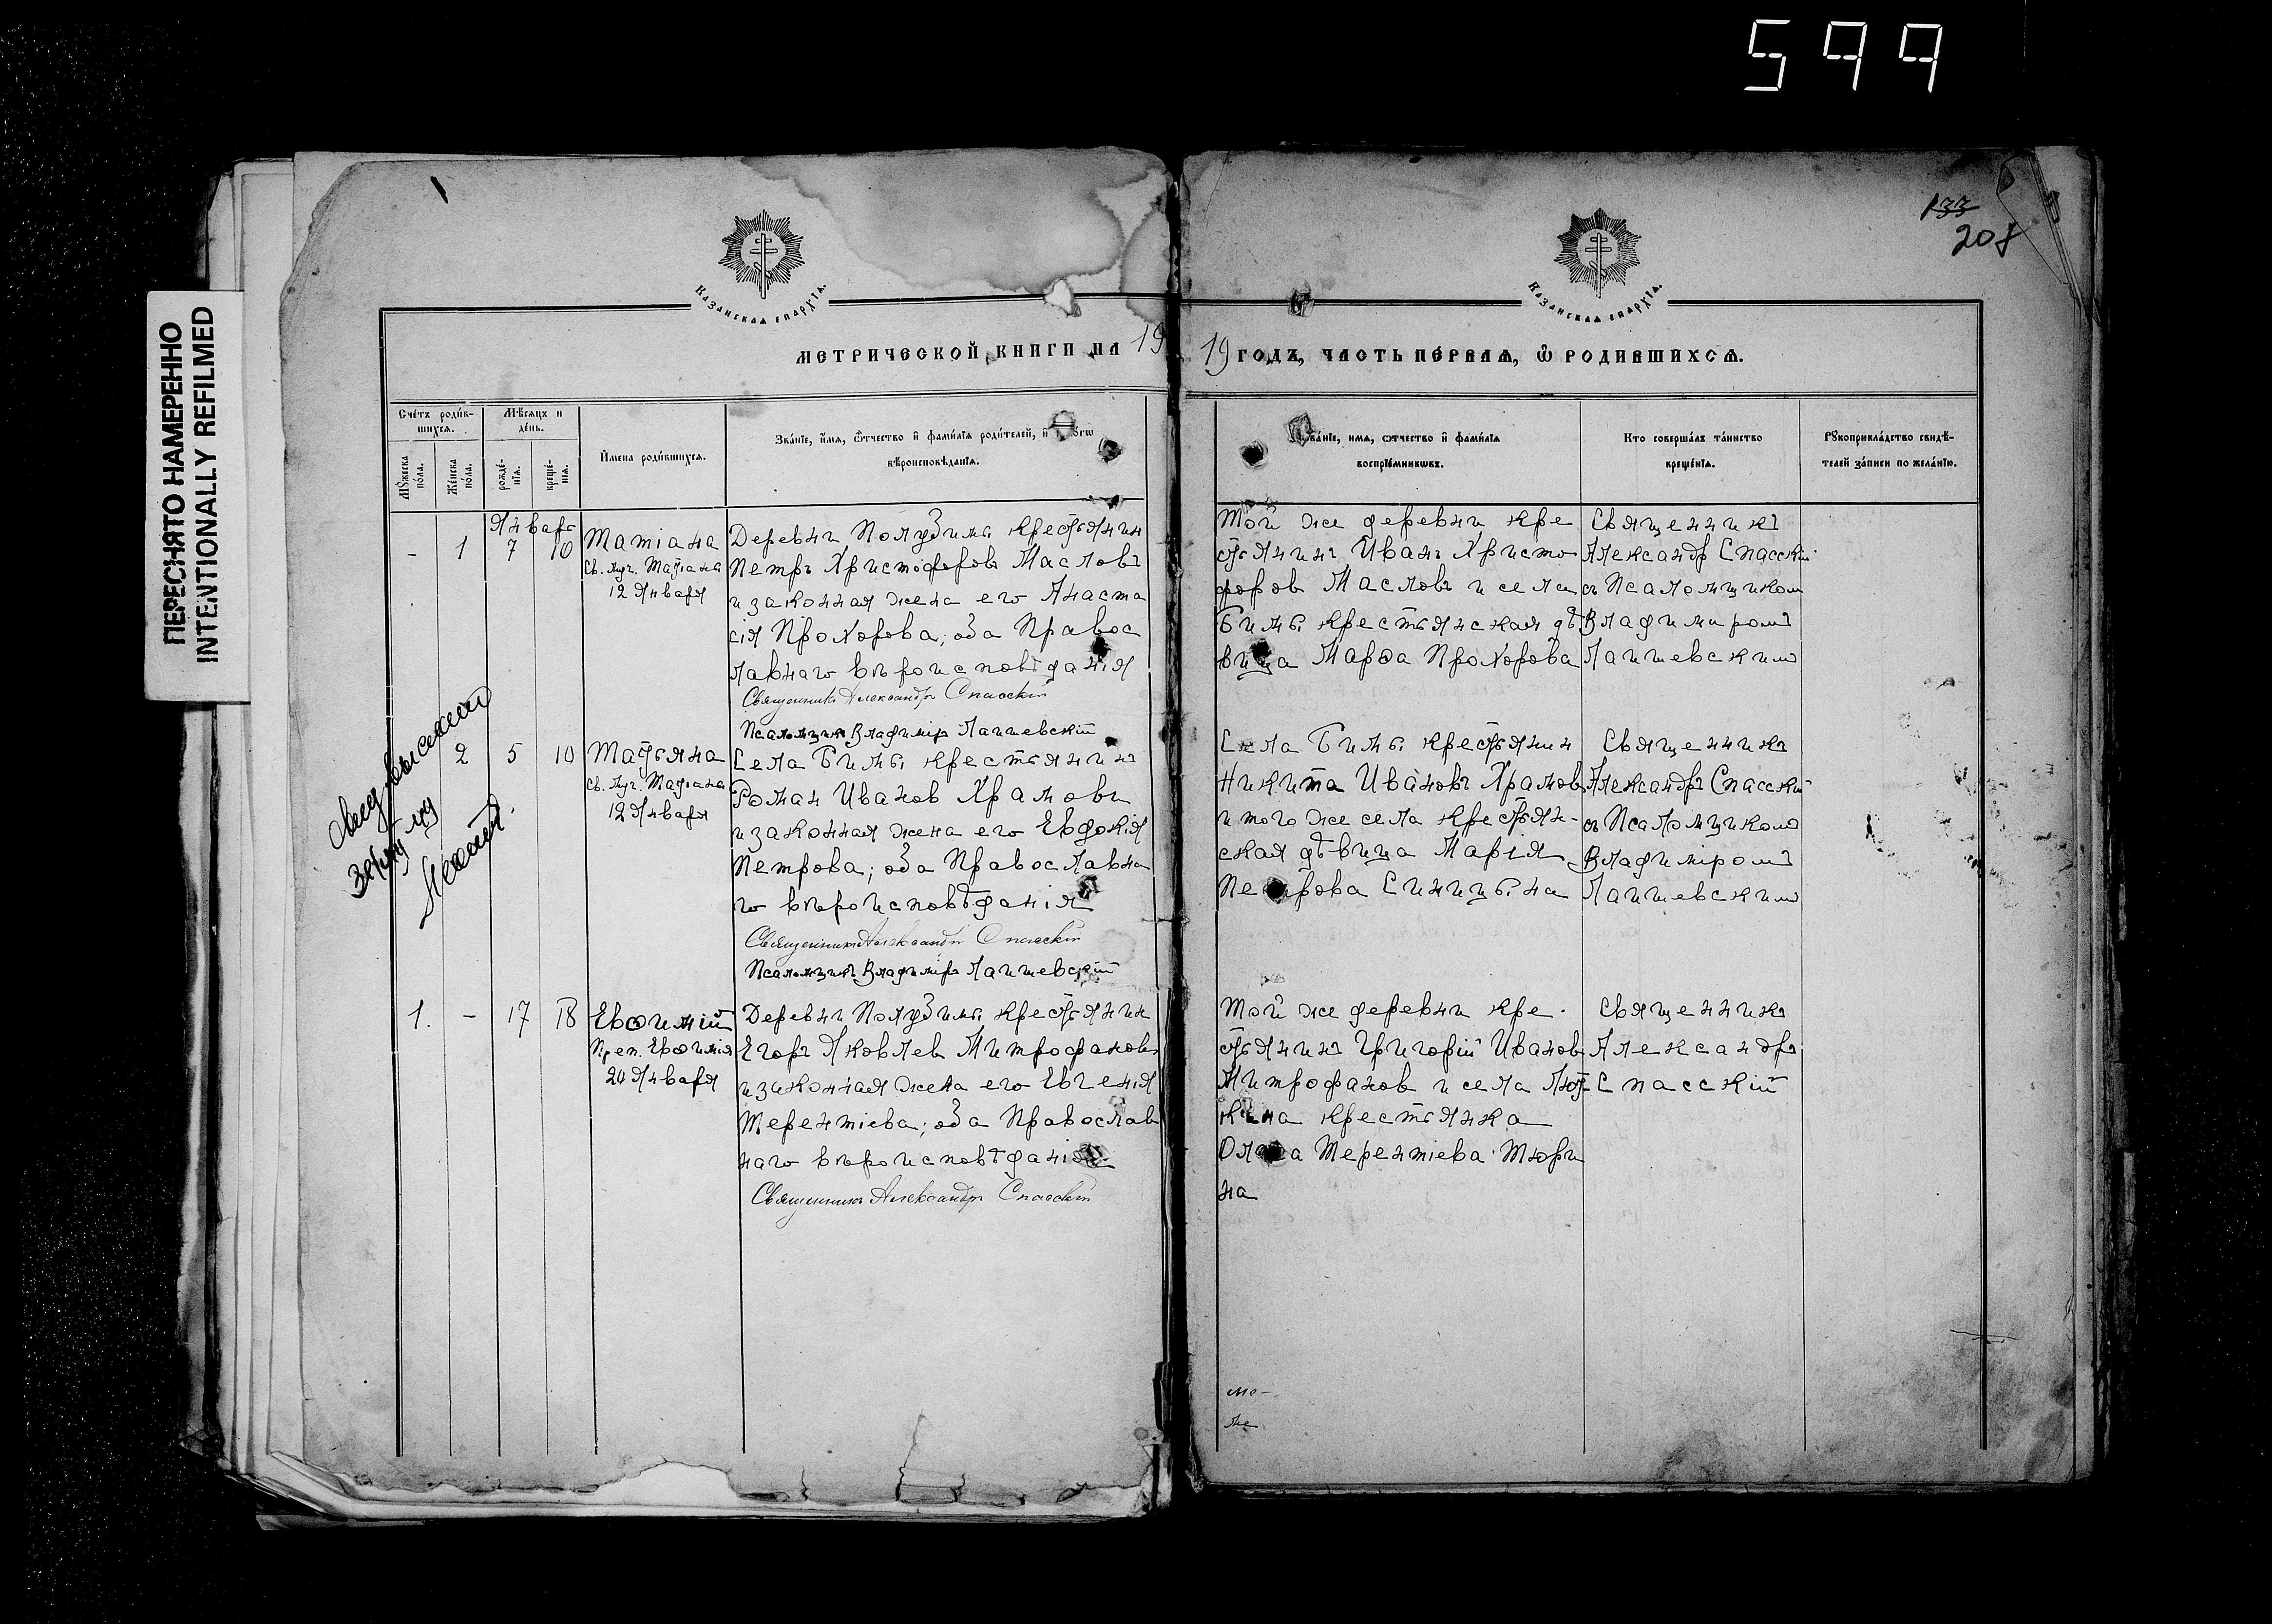 599
ПЕРЕСНЯТО НАМЕРЕННО
INTENTIONALLY REFILMED
133
208
Казанская епархїа.
Казанская епархїа.
МЕТРИЧЕСКОЙ КНИГИ НА 19
19 ГОДЪ, ЧАСТЬ ПЕРВАЯ, Ѿ РОДИВШИХСЯ.
Счетъ родив-
шихся.
Мѣсяцъ и
день.
Мужеска
пола.
Женска
пола.
рожде-
нїя.
креще-
нїя.
Имена родившихся.
Званїе, имя, ѿчество и фамилїя родителей, и
вѣроисповѣданїя.
Званїе, имя, ѿчество и фамилїя
воспрїемникѡвъ.
Кто совершалъ таинство
крещенїя.
Рукоприкладство свидѣ-
телей записи по желанїю.
Январь
- 1 7 10
Татіана
Св. муч. Татіана
12 Января
Деревни Полузимы крестьянин
Петръ Христофоровъ Масловъ
и законная жена его Анаста
сія Прохорова, оба Правос
лавнаго вѣроисповѣданія
Священникъ Александръ Спасскій
Псаломщикъ Владиміръ Лаишевскій
Той же деревни кре
стьянинъ Иванъ Христо
форов Масловъ и села
Бимы крестьянская дѣ
вица Марѳа Прохорова
Священникъ
Александр Спасскій
съ Псаломщиком
Владимиромъ
Лаишевским
2 5 10
Татьяна
Св. муч. Татіана
12 Января
Села Бимы крестьянинъ
Роман Иванов Храмовъ
и законная жена его Евдокія
Петрова; оба Православна
го вѣроисповѣданія
Священникъ Александръ Спасскій
Псаломщикъ Владиміръ Лаишевскій
Села Бимы крестьянин
Никита Ивановъ Храмов
и того же села крестьян-
ская дѣвица Марія
Петрова Синицына
Священникъ
Александръ Спасскій
съ Псаломщиком
Владиміромъ
Лаишевским
1. - 17 18
Евѳимій
Преп. Евѳимія
20 Января
Деревни Полузимы крестьянин
Егоръ Яковлев Митрофановъ
и законная жена его Евгенія
Терентіева; оба Православ
наго вѣроисповѣданія
Священникъ Александръ Спасскій
Той же деревни кре.
стьянинъ Григорій Иванов
Митрофанов и села
крестьянка
Терентіева Тюри
на
Священникъ
Александръ
Спасскій